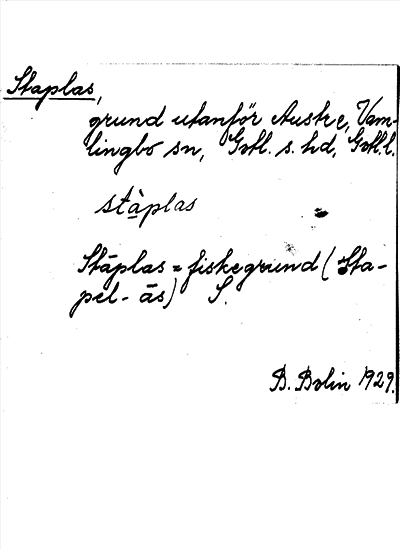 Staplas,
grund utanför Austre, Vam-
lingbo sn, Gotl. s. hd, Gotl. l.
stàplas
Stāplas = fiskegrund (Sta-
pel-ås) S.
B. Bolin 1929.